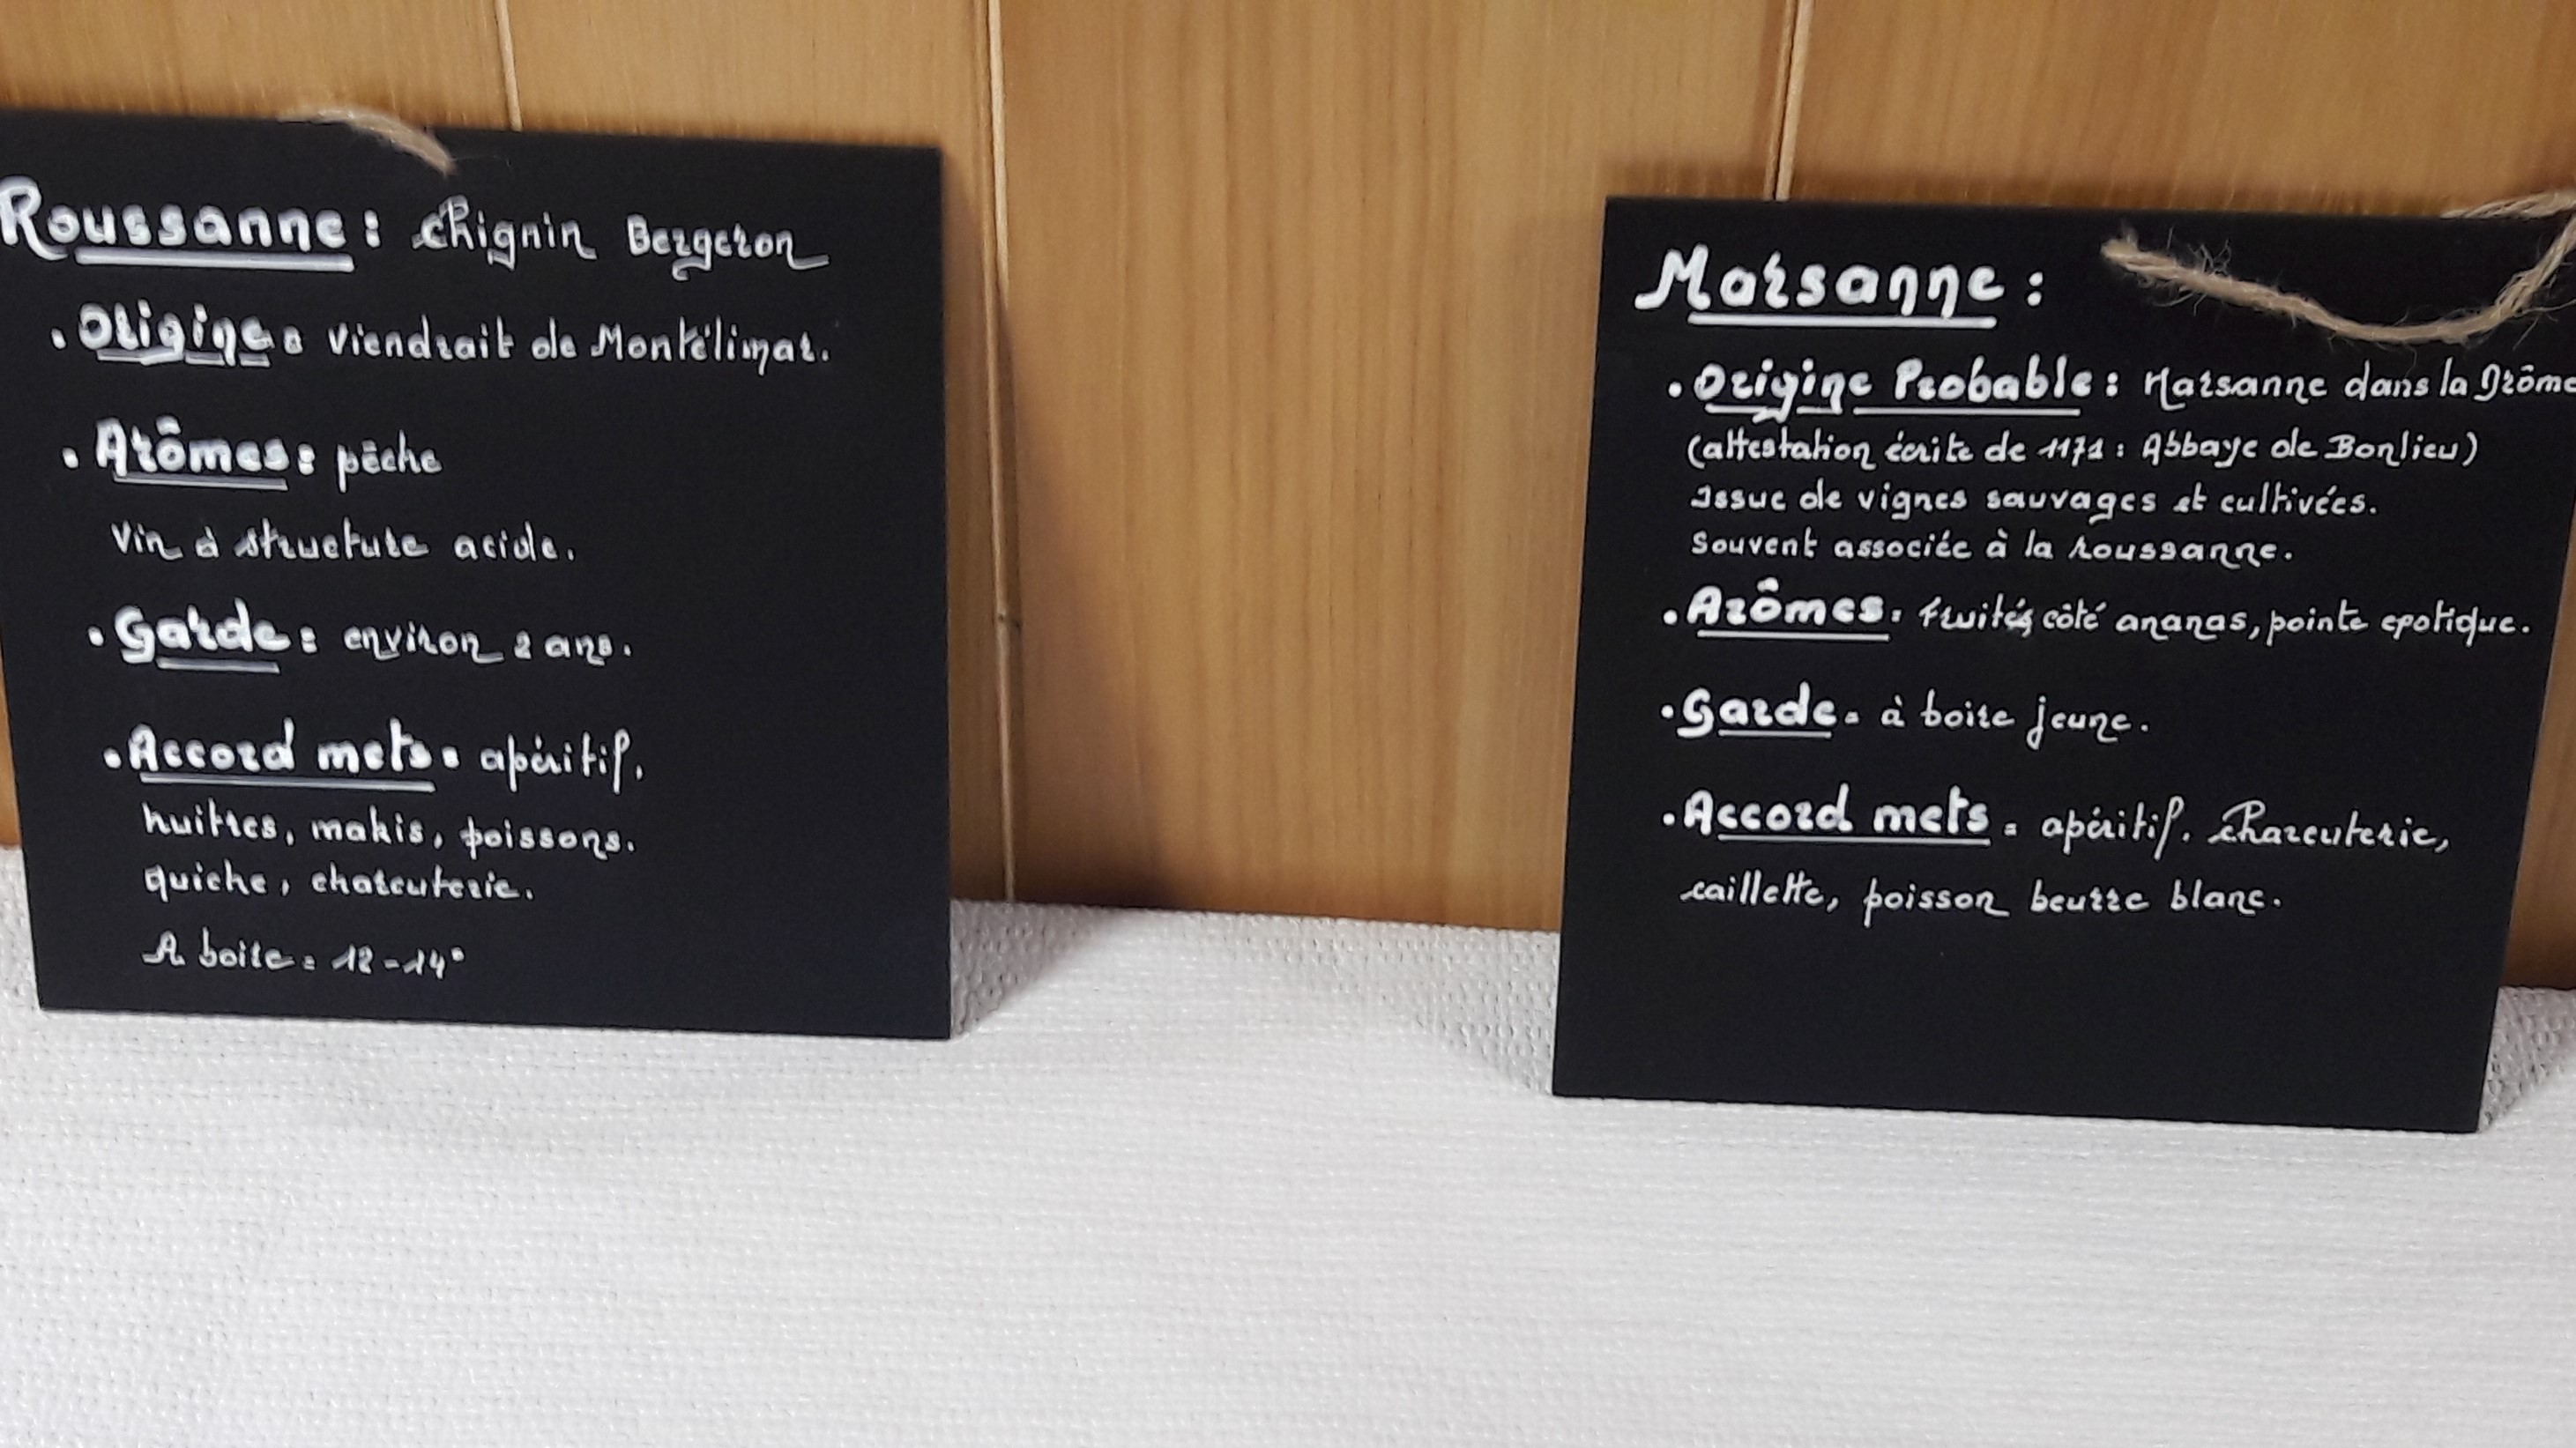 Roussanne : Chignin Bergeron
. Origine : viendrait de Montélimar.
. Arômes : pêche
Vin à structure acide.
. Garde : environ 2 ans.
. Accord mets : apéritif,
huîtres, makis, poissons.
quiche, charcuterie.
A boire : 12-14°
Marsanne :
. Origine Probable : Marsanne dans la Drôme
(attestation écrite de 1171 : Abbaye de Bonlieu)
Issue de vignes sauvages et cultivées.
Souvent associée à la roussanne.
. Arômes : fruités côté ananas, pointe exotique.
. Garde : à boire jeune.
. Accord mets : apéritif. Charcuterie,
caillette, poisson beurre blanc.